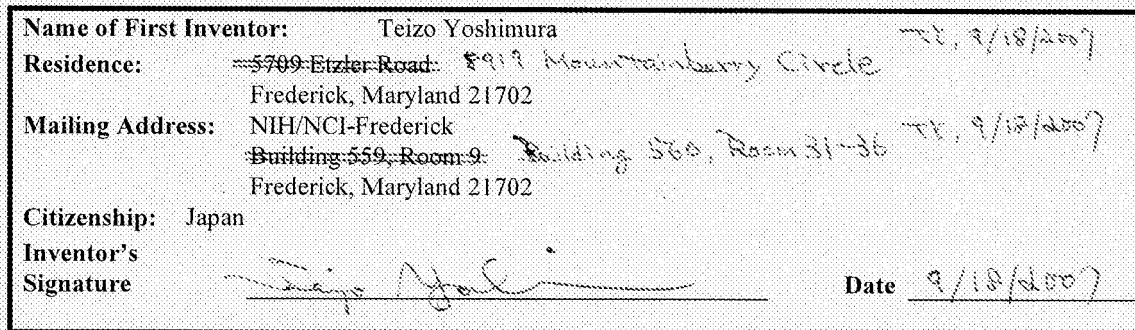 Name of First Inventor: Teizo Yoshimura TY, 9/18/2007
Residence: 5709 Etzler Road 8919 Mountainberry Circle
Frederick, Maryland 21702
Mailing Address: NIH/NCI-Frederick
Building 559, Room 9 Building 560, Room 31-36 TY, 9/18/2007
Frederick, Maryland 21702
Citizenship: Japan
Inventor's
Signature Teizo Yoshimura Date 9/18/2007